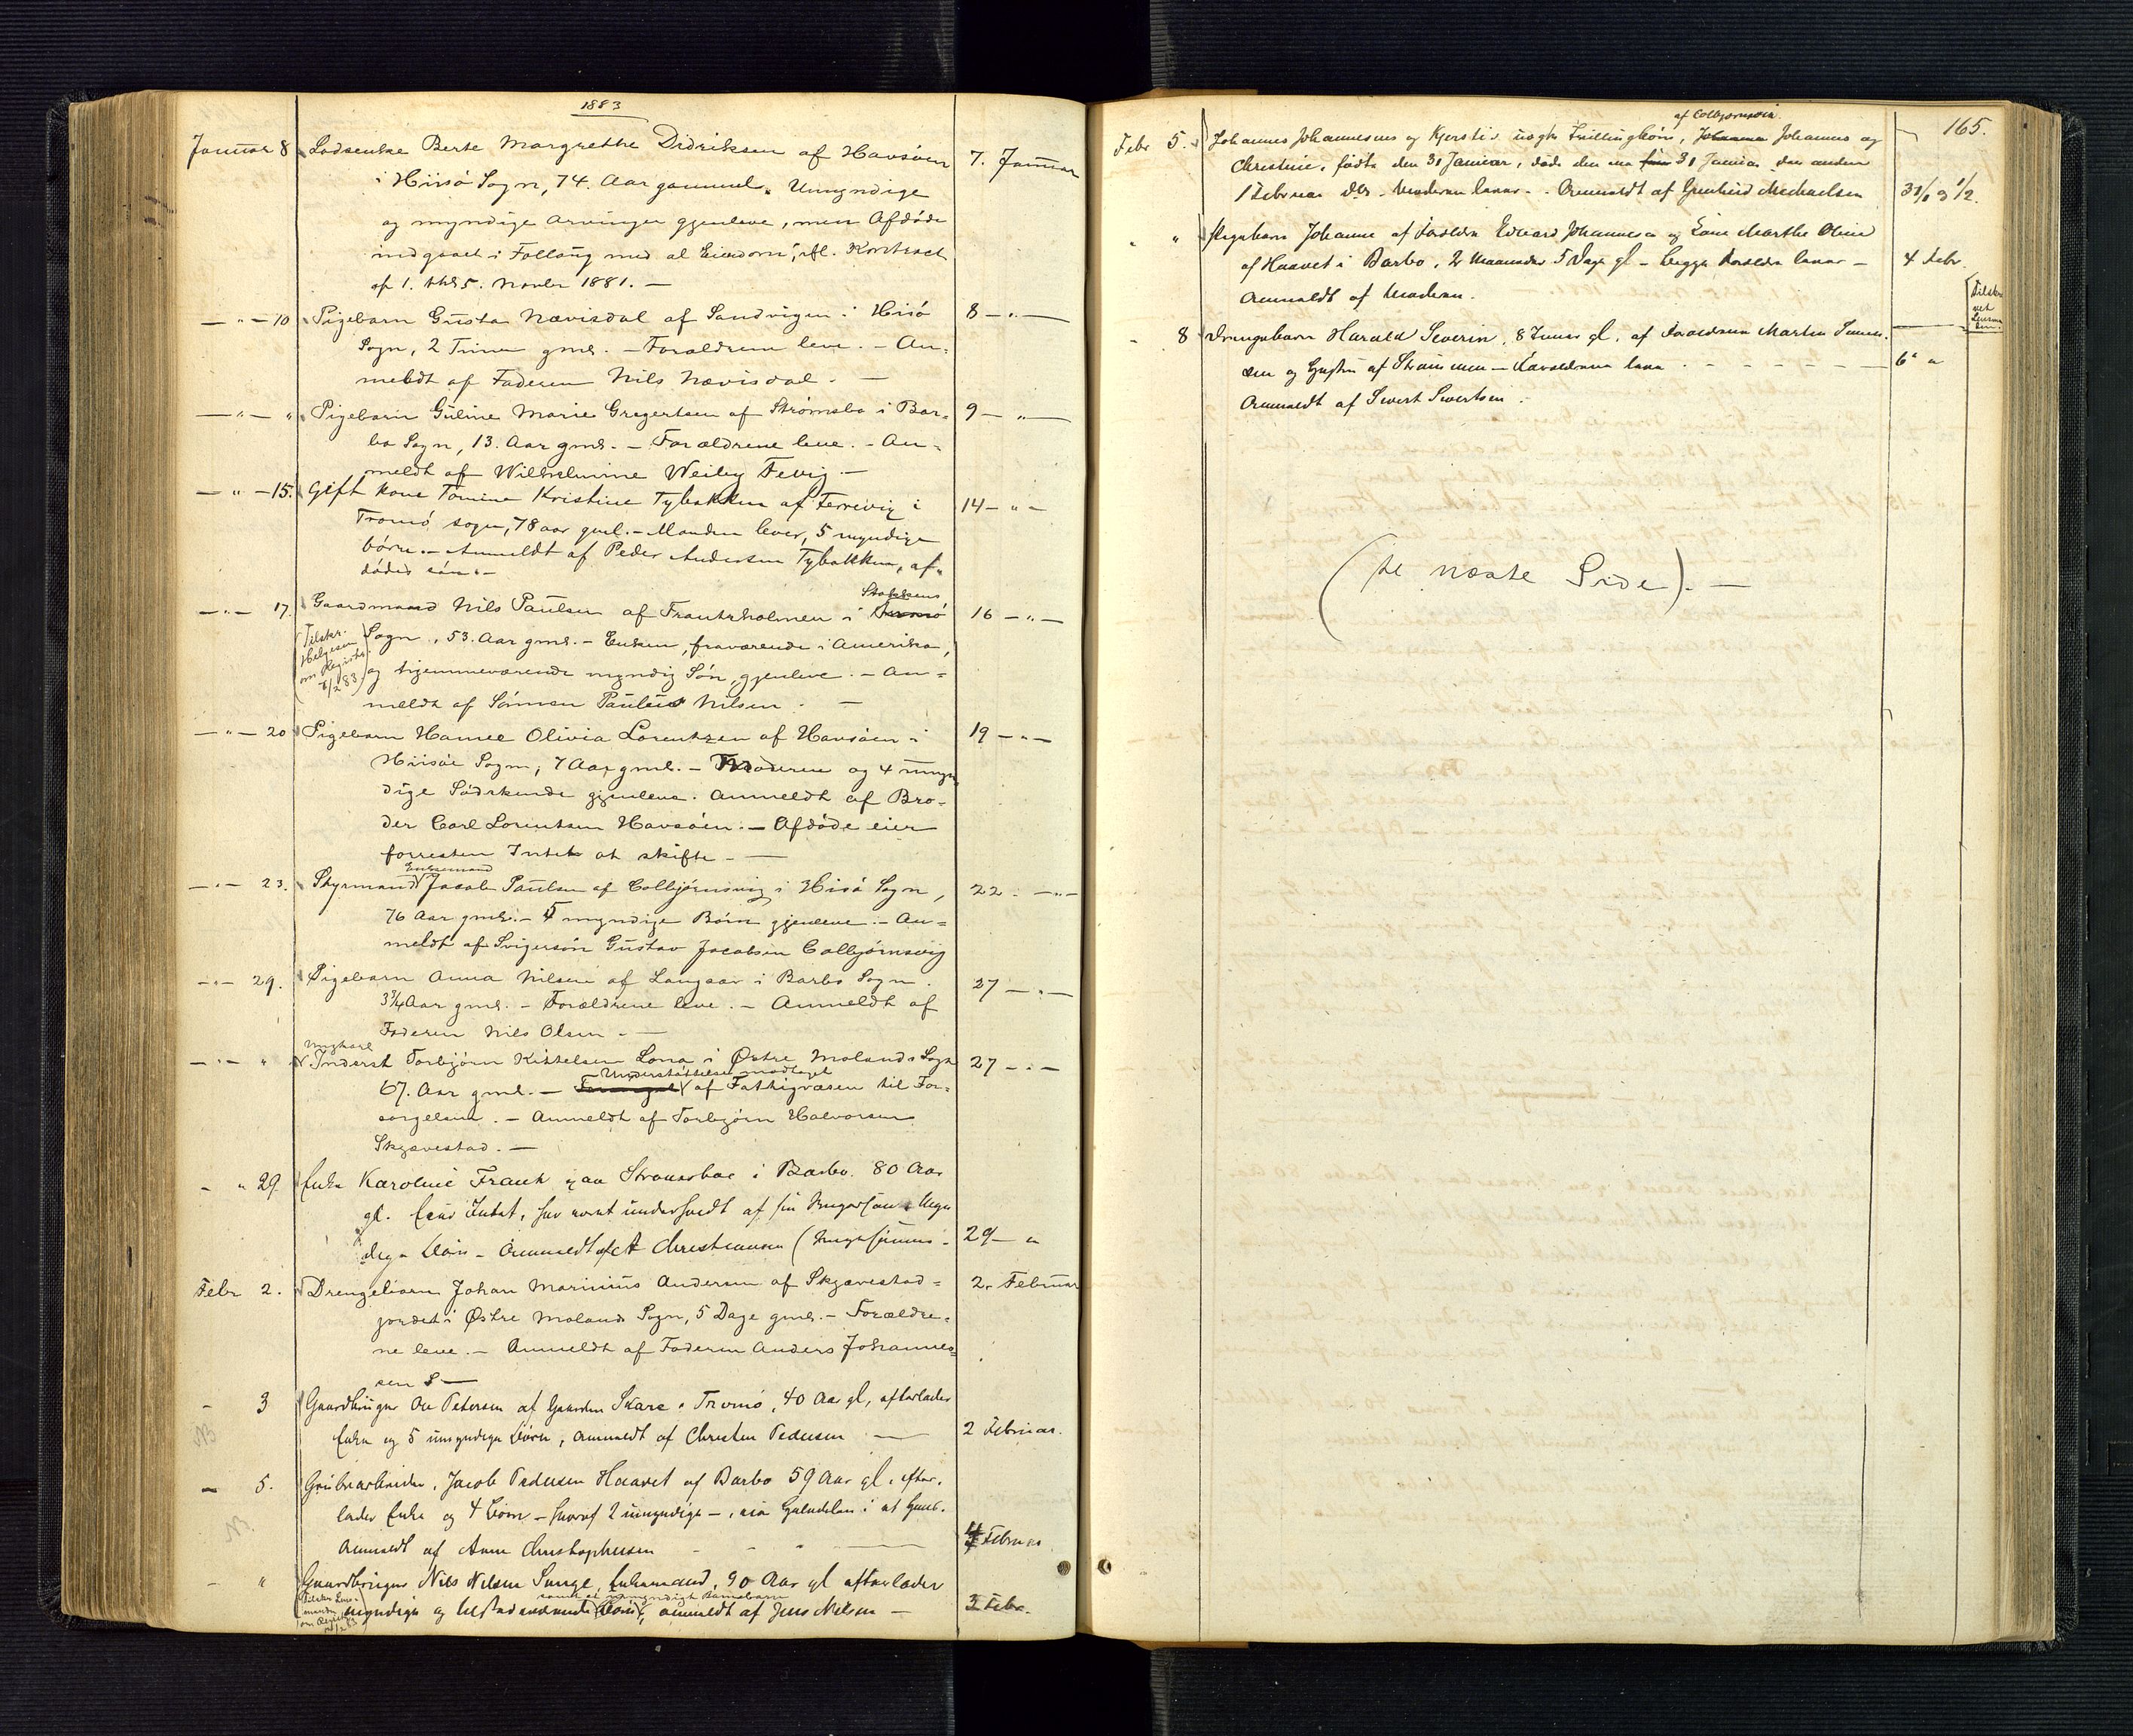 1883
Januar 8 Lodsenke Berte Margrethe Didriksen af Havsøen 7. Januar
i Hiisø Sogn, 74. Aar gammel. Umyndige
og myndige Arvinger gjenleve, men Afdøde
indgaaet i Follaug med al Eiendom, ifl. Kontract
af 1. thl. 5. Novbr 1881. —
— " — 10 Pigebarn Gusta Nævisdal af Sandvigen i Hisø 8 — " —
Sogn, 2 Timer gml. — Forældrene leve. — An-
meldt af Faderen Nils Nævisdal. —
— " — " Pigebarn Guline Marie Gregertsen af Strømsbo i Bar- 9 — " —
bo Sogn, 13. Aar gml. — Forældrene leve. — An-
meldt af Wilhelmine Weiby Fevig —
— " — 15. Gift kone Tomine Kristine Tybakken af Færvig i 14 — " —
Tromø sogn, 78 aar gml. — Manden lever, 5 myndige
børn. — Anmeldt af Peder Andersen Tybakken, af-
dødes søn. —
Stokkens
— " — 17. Gaardmand Nils Paulsen af Frautzholmen i Tromø 16 — " —
Sogn, 53. Aar gml. — Enken, fraværende i Amerika,
Tilskr. Helgesen om Registr. 8/2 83
og hjemmeværende myndig Søn, gjenleve. — An-
meldt af Sønnen Paulus Nilsen. —
— " — 20 Pigebarn Hanne Olivia Lorentzen af Havsøen i 19 — " —
Hiisøe Sogn, 7 Aar gml. — Moderen og 4 umyn-
dige Sødskende gjenleve. Anmeldt af Bro-
der Carl Lorentsen Havsøen. — Afdøde eier
forresten Intet at skifte. —
Enkemand
— " — 23. Styrmand Jacob Paulsen af Colbjørnsvig i Hisø Sogn, 22. — " —
76 Aar gml. — 5 myndige Børn gjenleve. — An-
meldt af Svigersøn Gustav Jacobsen Colbjørnsvig
— " — 29. Pigebarn Anna Nilsen af Langsæ i Barbo Sogn. 27 — " —
3 3/4 Aar gml. — Forældrene leve. — Anmeldt af
Faderen Nils Olsen. —
Ungkarl
— " — " Inderst Torbjørn Kittelsen Lona i Østre Molands Sogn 27 — " —
Understøttelse modtaget
67. Aar gml. — af Fattigvæsen til For-
sørgelsen. — Anmeldt af Torbjørn Halvorsen
Skjævestad. —
— " 29. Enke Karoline Frank paa Strømsboe i Barbo. 80 Aar
gl. Eier Intet, har været underholdt af sin Svigersøn. Myn
dige Børn — Anmeldt af A Christiansen (Svigersønnen — 29 — "
Febr 2. Drengebarn Johan Marinius Andersen af Skjævestad- 2. Februar
jordet i Østre Molands Sogn, 5 Dage gml. — Forældre-
ne leve. — Anmeldt af Faderen Anders Johannes-
sen S —
— 3 Gaardbruger Ole Petersen af Gaarden Skare i Tromø, 40 Aar gl, efterlader
NB Enke og 5 umyndige Børn, Anmeldt af Christen Pedersen — 2 Februar.
— 5. Grubearbeider, Jacob Pedersen Haavet af Barbo 59 Aar gl. efter-
NB. lader Enke og 4 Børn — hvoraf 2 umyndige —
Anmeldt af Anne Christophersen — 4 Februar
— " Gaardbruger Nils Nilsen Longe, Enkemand, 90 Aar gl efterlader
samt et umyndigt Barnebarn
myndige og tilstedeværende Børn, anmeldt af Jens Nielsen — 3 Febr.
165.
af Colbjørnsvig.
Febr 5. Johannes Johannesens og Kjerstis uægte Tvillingbørn, Johannes og
Christine, født den 31 Januar, døde den ene 31 Januar den anden
1 Februar ds. Moderen lever. Anmeldt af Gunhild Michaelsen 31/1 & 1/2.
" " Pigebarn Johanne af Forældre Edvard Johannesen og Lovise Marthe Oline
af Haavet i Barbo, 2 Maaneder 5 Dage gl — begge Forældre lever — 4 Febr
Anmeldt af Moderen.
— 8 Drengebarn Harald Severin, 8 Timer gl. af Forældrene Martin Simon-
sen og Gustine af Strømmen — Forældrene leve. 6" "
Anmeldt af Sivert Sivertsen.
(Se næste Side). —